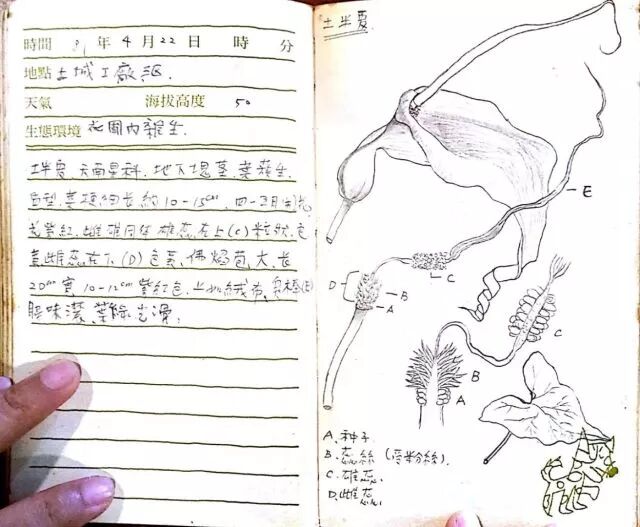 時間 81 年 4 月 22 日 時 分
地點 土城工廠區.
天氣 海拔高度 50
生態環境 花園內雜生.
土半夏.天南星科.地下塊莖.葉叢生.
盾型.葉項細長約10-15cm.四-五月開花
花紫紅.雌雄同年雄蕊在上(C)粒狀.色
黃雌蕊在下(D)色黃.佛焰苞大.長
20cm寬10-12cm紫紅色.上如絨布.
腥味濃.葉綠光滑.
土半夏.
E
C
D
B
A
C
B
A
A.種子
B.蕊絲(受粉絲).
C.雄蕊.
D.雌蕊.